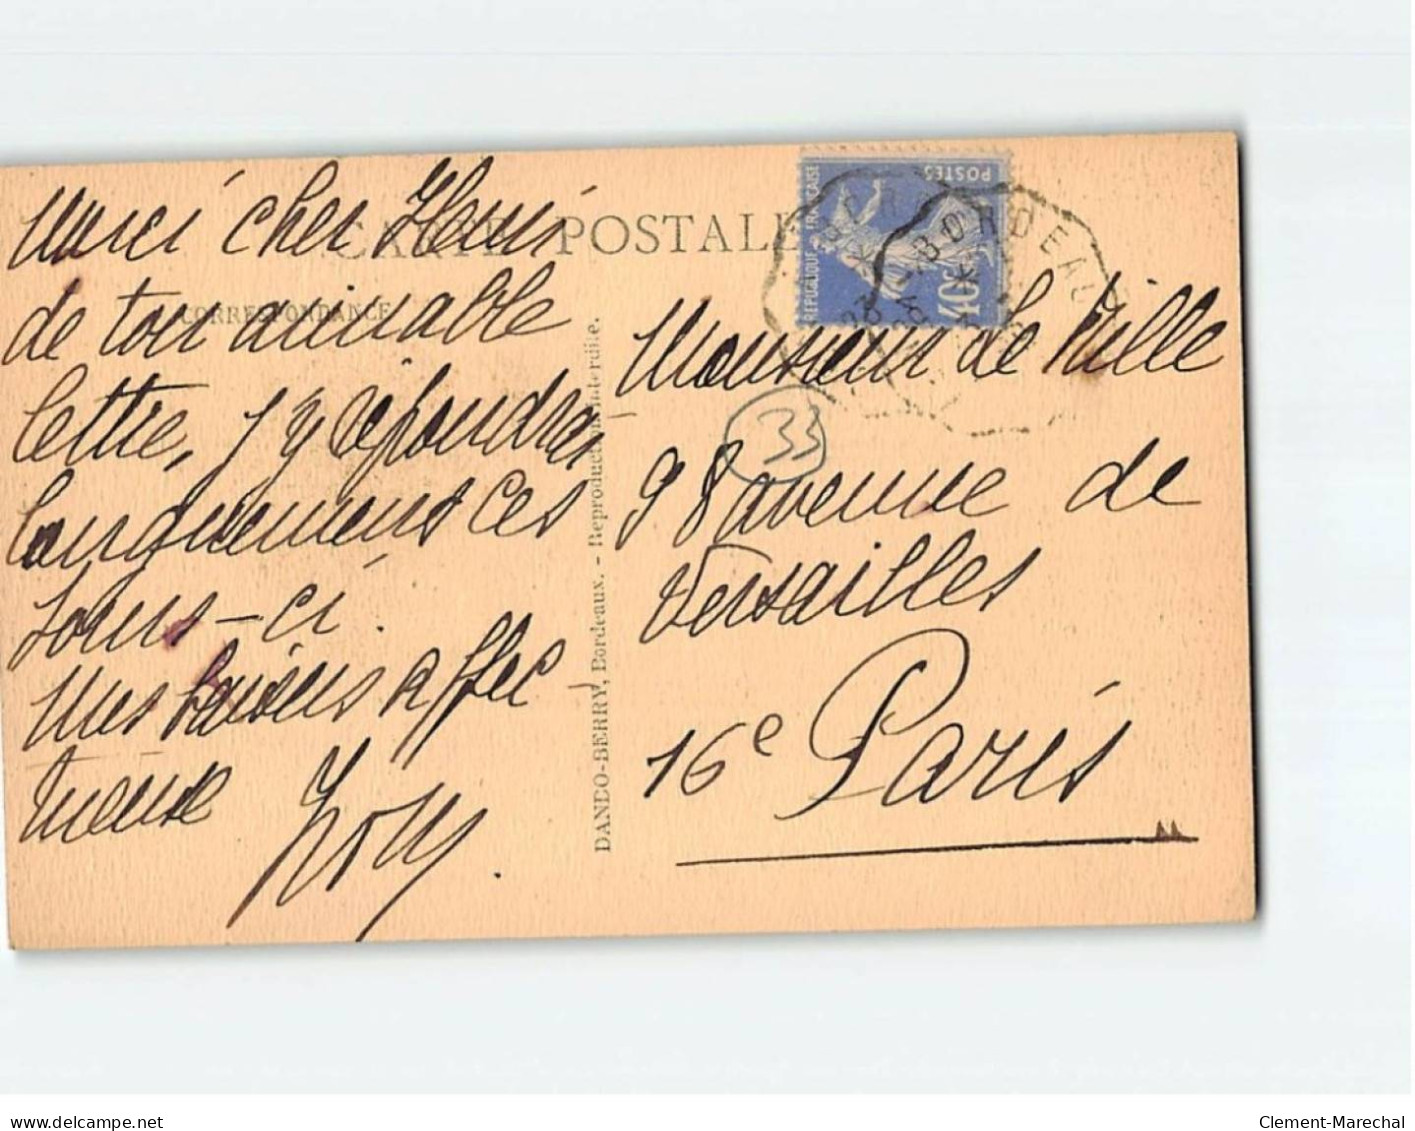 CARTE POSTALE
CORRESPONDANCE
Merci cher Henri
de ton aimable
lettre, j'y répondrai
longuement ces
jours-ci.
Mes baisers affec
tueux
DANDO-BERRY, Bordeaux. - Reproduction interdite.
RÉPUBLIQUE FRANÇAISE
POSTES
40c
BORDEAUX
Monsieur de Mille
33
98 avenue de
Versailles
16e Paris
delcampe.net
Clement-Marechal